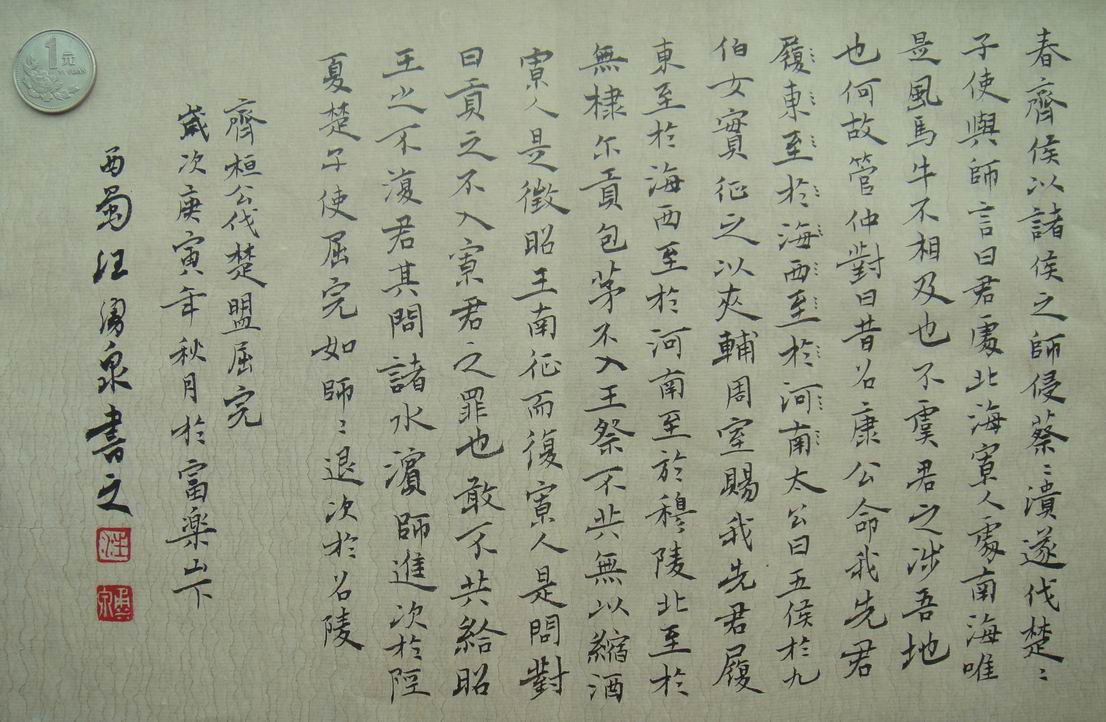 春齊侯以諸侯之師侵蔡〻潰遂伐楚〻
子使與師言曰君處北海寡人處南海唯
是風馬牛不相及也不虞君之涉吾地
也何故管仲對曰昔召康公命我先君
履東至於海西至於河南太公曰五侯於九
伯女實征之以夾輔周室賜我先君履
東至於海西至於河南至於穆陵北至於
無棣尔貢包茅不入王祭不共無以縮酒
寡人是徵昭王南征而復寡人是問對
曰貢之不入寡君之罪也敢不共給昭
王之不復君其問諸水濱師進次於陘
夏楚子使屈完如師〻退次於召陵
齊桓公伐楚盟屈完
歲次庚寅年秋月於富楽山下
西蜀汪勇泉書之
汪
勇泉
1元
YI YUAN